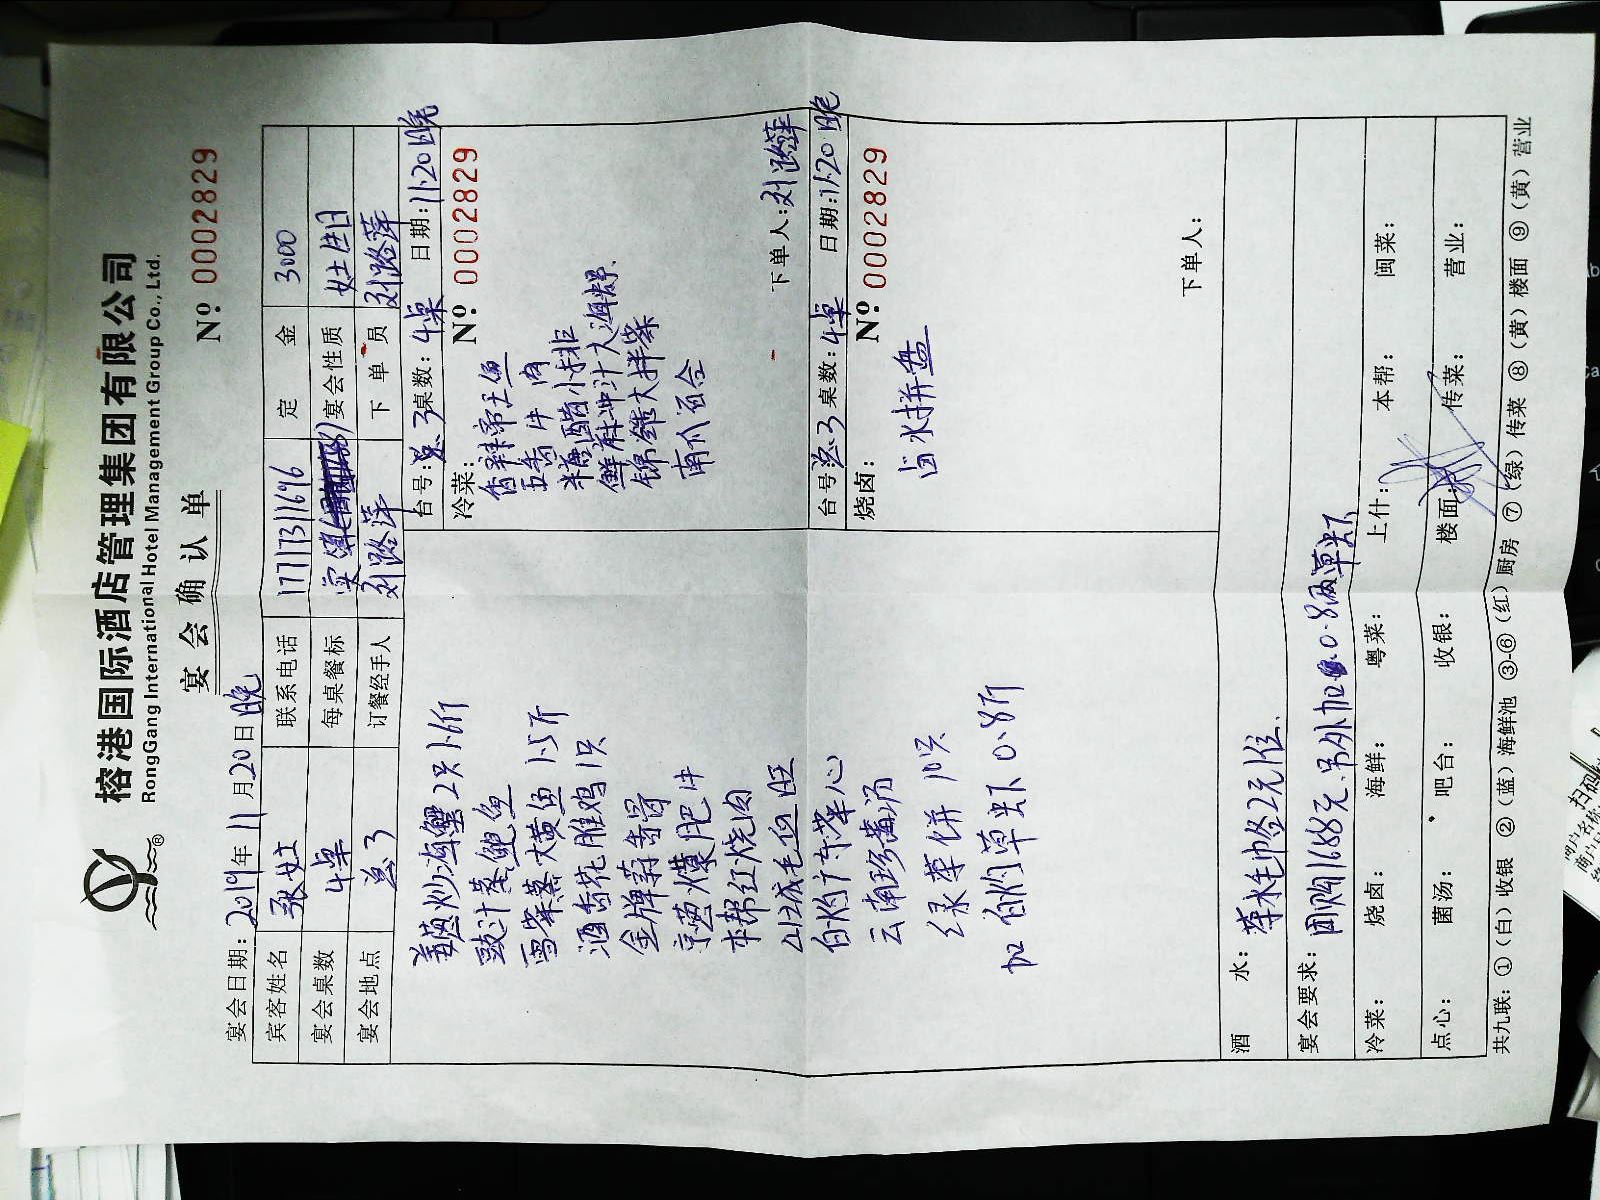 榕港国际酒店管理集团有限公司
RongGang International Hotel Management Group Co., Ltd.
宴会确认单
№ 0002829
宴会日期: 2019年 11月20日晚
宾客姓名 张女士 联系电话 17717311696 定金 3000
宴会桌数 4桌 每桌餐标 宴会性质 生日
宴会地点 总3 订餐经手人 刘路萍 下单员 刘路萍
姜葱炒海蟹2只1.6斤
豉汁蒸鲍鱼
雪菜蒸大黄鱼 1.5斤
酒香花雕鸡1只
金牌蒜香骨
京葱爆肥牛
本帮红烧肉
山城毛血旺
白灼广东菜心
云南珍菌汤
绿茶饼 10只
加 白灼草虾 0.8斤
台号: 总3 桌数: 4桌 日期: 11.20晚
冷菜: № 0002829
香辣帝王鱼
五香牛肉
糖醋小排
鲜麻冲汁大海螺
锦绣大拌菜
南瓜百合
下单人: 刘路萍
台号 总3 桌数: 4桌 日期: 11.20晚
烧卤: № 0002829
卤水拼盘
下单人:
酒水: 茶水毛巾各2元/位
宴会要求: 团购1688元.另外加 0.8斤草虾
冷菜: 烧卤: 海鲜: 粤菜: 上什: 本帮: 闽菜:
点心: 菌汤: 吧台: 收银: 楼面: 传菜: 营业:
共九联: ①(白)收银 ②(蓝)海鲜池 ③-⑥(红)厨房 ⑦(绿)传菜 ⑧(黄)楼面 ⑨(黄)营业